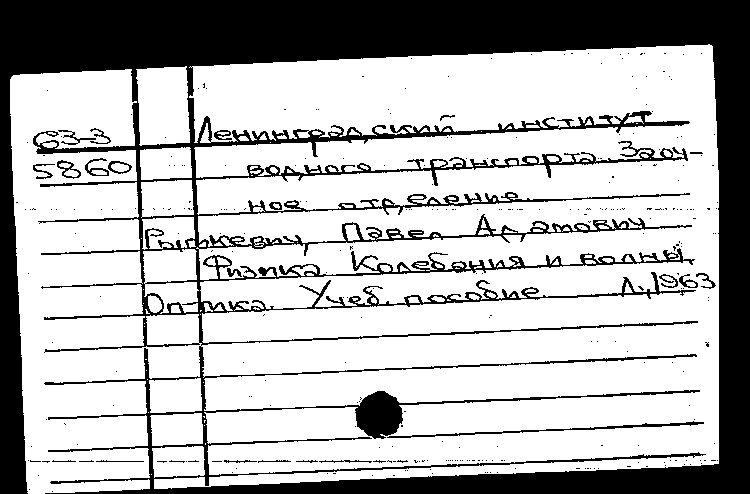 63-3 Ленинградский институт
5860 водного транспорта. Заоч-
ное отделение.
Рымкевич, Павел Адамович
Физика. Колебания и волны.
Оптика. Учеб. пособие. Л., 1963